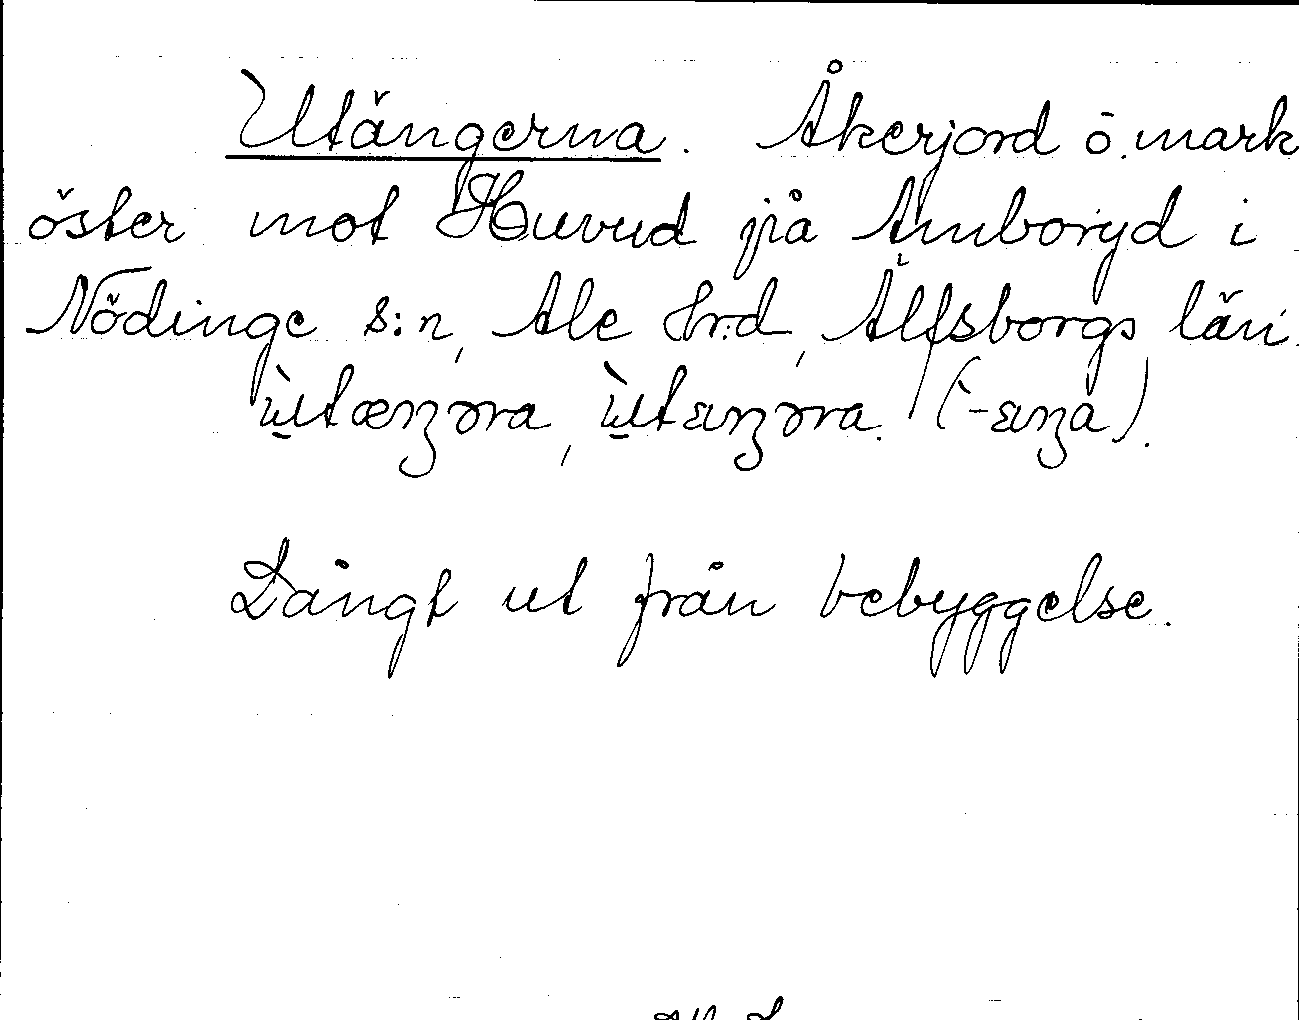 Utängerna. Åkerjord o. mark
öster mot Huvud på Amboryd i
Nödinge s:n, Ale hrd, Älfsborgs län.
Långt ut från bebyggelse.